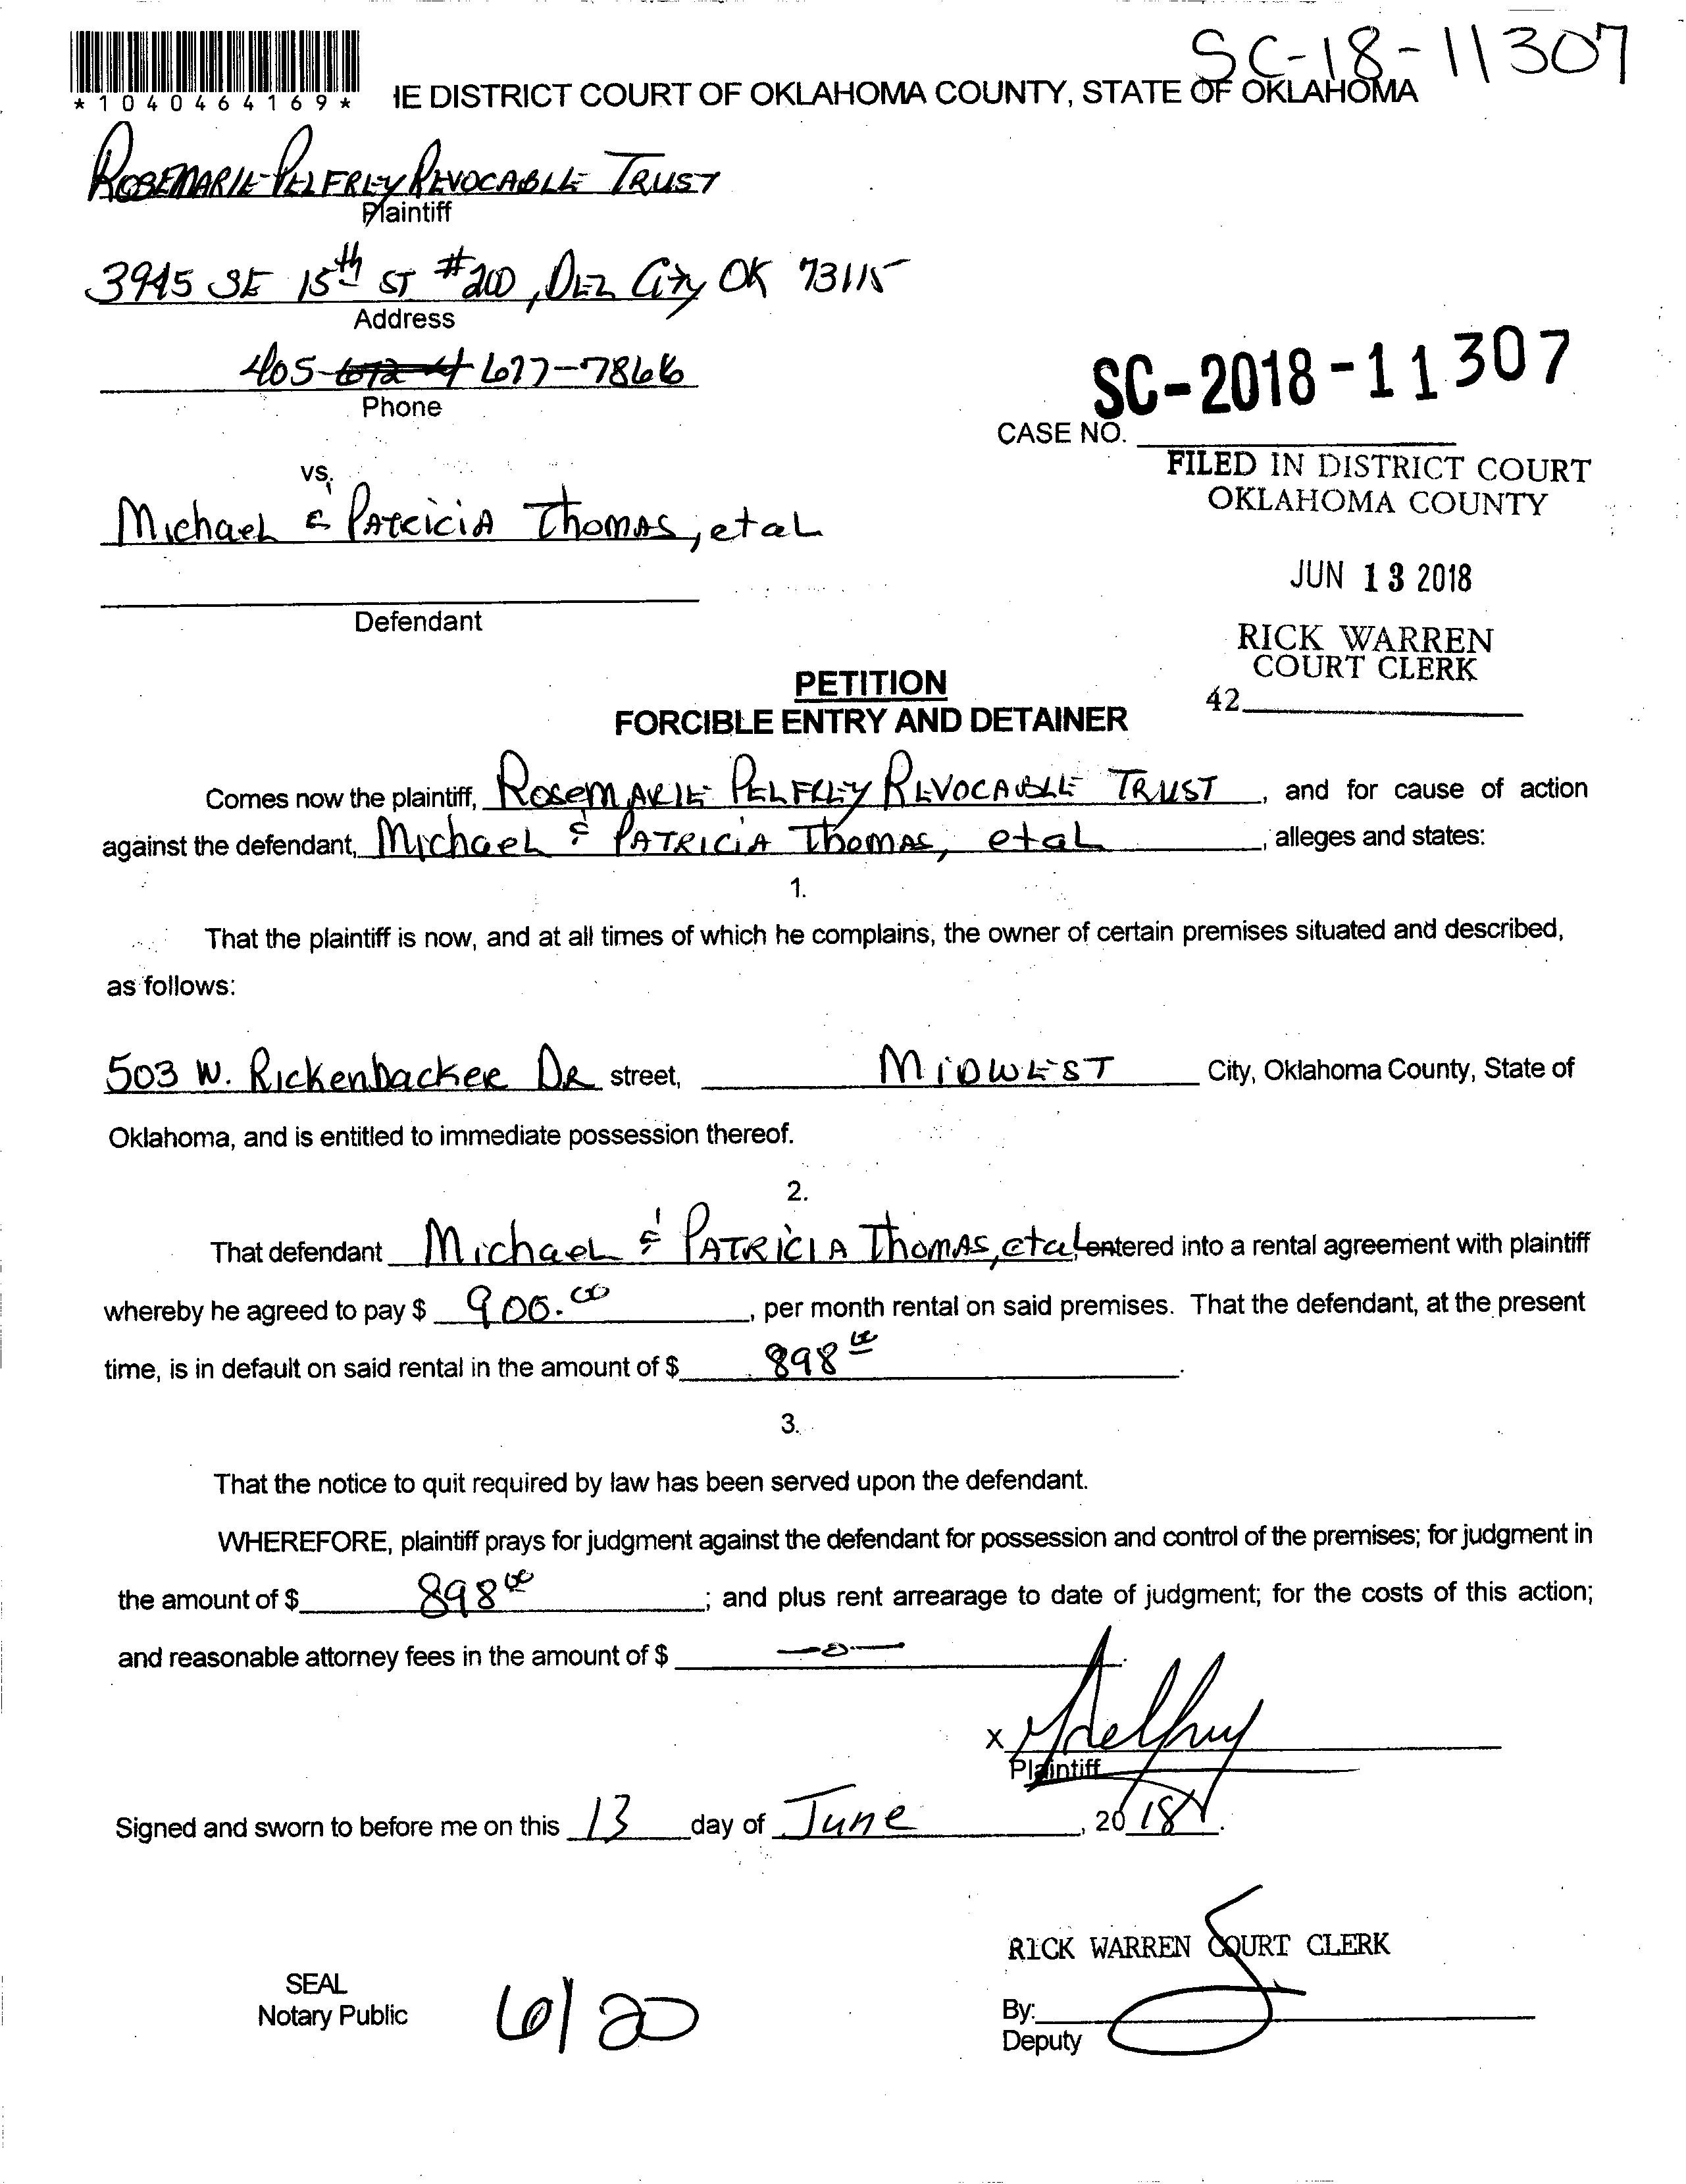 SC-18-11307
*1040464169*
IE DISTRICT COURT OF OKLAHOMA COUNTY, STATE OF OKLAHOMA
ROSEMARIE PELFREY REVOCABLE TRUST
Plaintiff
3945 SE 15th ST #200, DEL City OK 73115
Address
405- 677-7866
Phone
SC-2018-11307
CASE NO.
vs.
FILED IN DISTRICT COURT
OKLAHOMA COUNTY
Michael & PATRICIA Thomas, etal
JUN 13 2018
Defendant
RICK WARREN
COURT CLERK
42
PETITION
FORCIBLE ENTRY AND DETAINER
Comes now the plaintiff, ROSEMARIE PELFREY REVOCABLE TRUST, and for cause of action
against the defendant, Michael & PATRICIA Thomas, etal, alleges and states:
1.
That the plaintiff is now, and at all times of which he complains, the owner of certain premises situated and described,
as follows:
503 W. Rickenbacker DR street, MIDWEST City, Oklahoma County, State of
Oklahoma, and is entitled to immediate possession thereof.
2.
That defendant Michael & PATRICIA Thomas, etal entered into a rental agreement with plaintiff
whereby he agreed to pay $ 900.00, per month rental on said premises. That the defendant, at the present
time, is in default on said rental in the amount of $ 898 00.
3.
That the notice to quit required by law has been served upon the defendant.
WHEREFORE, plaintiff prays for judgment against the defendant for possession and control of the premises; for judgment in
the amount of $ 898 00; and plus rent arrearage to date of judgment; for the costs of this action;
and reasonable attorney fees in the amount of $ —0—.
X
Plaintiff
Signed and sworn to before me on this 13 day of June, 2018.
RICK WARREN COURT CLERK
SEAL
Notary Public
6/20
By:
Deputy